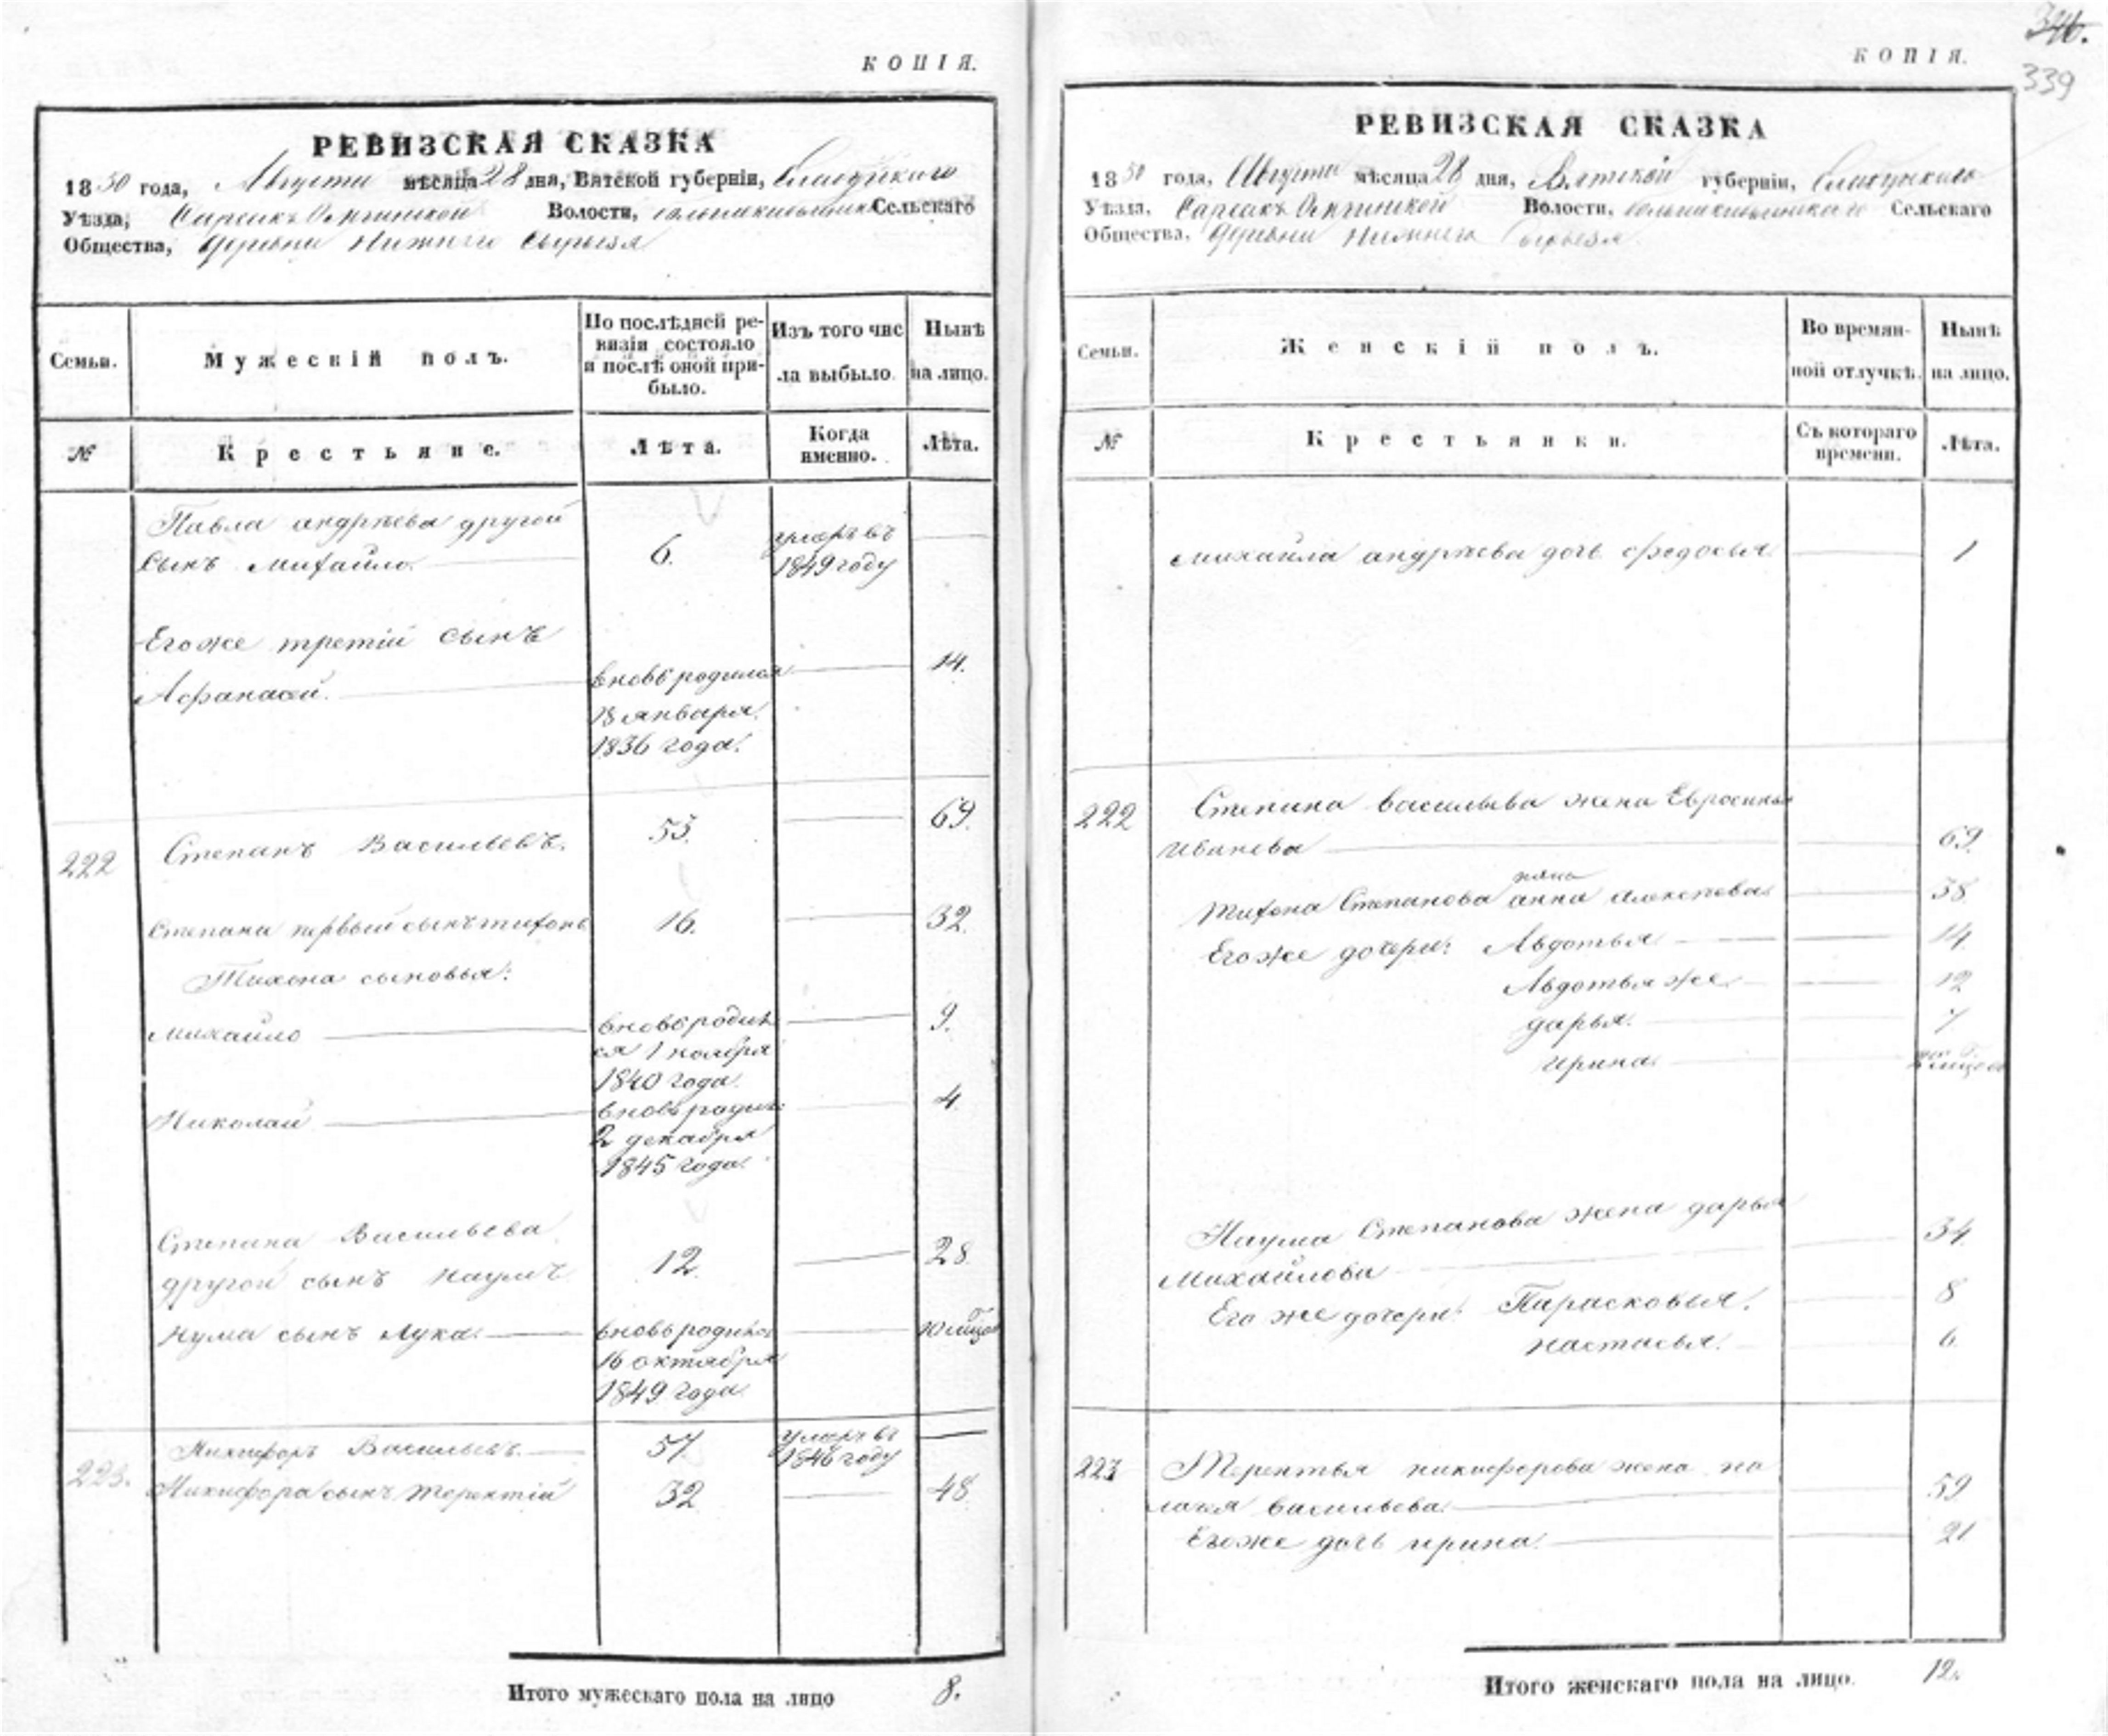 КОПІЯ.
РЕВИЗСКАЯ СКАЗКА
1850 года, Августа мѣсяца 28 дня, Вятской губерніи,
Уѣзда, Волости, Сельскаго
Общества, деревни Нижняго Сырьеза
Семьи.
Мужескій полъ.
По послѣдней ре-
визіи состояло
и послѣ оной при-
было.
Изъ того чис
ла выбыло.
Нынѣ
на лицо.
№
Крестьяне.
Лѣта.
Когда
именно.
Лѣта.
Павла андрѣева другой
сынъ Михайло. 6. умеръ въ
1849 году
Егоже третій сынъ
Афанасей. вновь родился 14.
13 января
1836 года.
222 Степанъ Васильевъ. 53. 69.
Степана первый сынъ тихонъ 16. 32.
Тихона сыновья:
Михайло вновь родил 9.
ся 1 ноября
1840 года.
Николай вновь родил: 4
2 декабря
1845 года.
Степана Васильева
другой сынъ наумъ 12. 28.
Нума сынъ Лука. вновь родился
16 октября
1849 года
223. Никифоръ Васильевъ. 57. умеръ въ
1846 году
Никифора сынъ терентій 32 48.
Итого мужескаго пола на лицо 8.
346.
339
КОПІЯ.
РЕВИЗСКАЯ СКАЗКА
1850 года, Августа мѣсяца 28 дня, Вятской губерніи,
Уѣзда, Волости, Сельскаго
Общества, деревни Нижняго Сырьеза.
Семьи.
Женскій полъ.
Во времян-
ной отлучкѣ.
Нынѣ
на лицо.
№
Крестьянки.
Съ котораго
времени.
Лѣта.
Михайла андрѣева дочь федосья 1
222 Степана васильева жена Евросинья
Иванова 69.
жена
Тихона Степанова анна алексѣева 38
Егоже дочери: Авдотья 14
Авдотья же 12
дарья. 7
ирина.
Наума Степанова жена дарья 34
Михайлова
Его же дочери: Парасковья. 8
настасья. 6
223 Терентья никифорова жена па
лагя васильева. 59
Егоже дочь ирина. 21
Итого женскаго пола на лицо. 12.